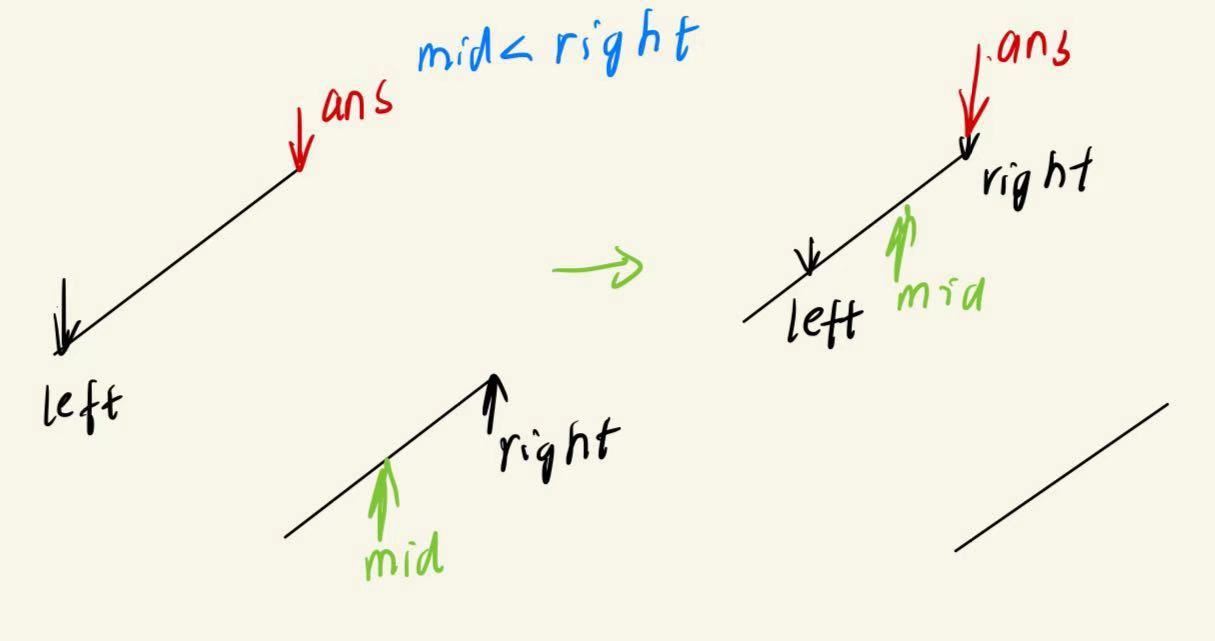 mid < right
ans
left
right
mid
ans
right
mid
left